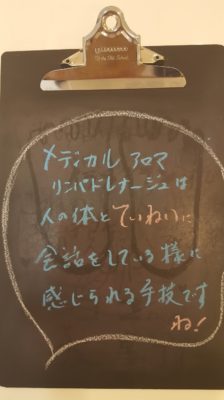 メディカル アロマ
リンパドレナージュは
人の体とていねいに
会話をしている様に
感じられる手技です
ね!